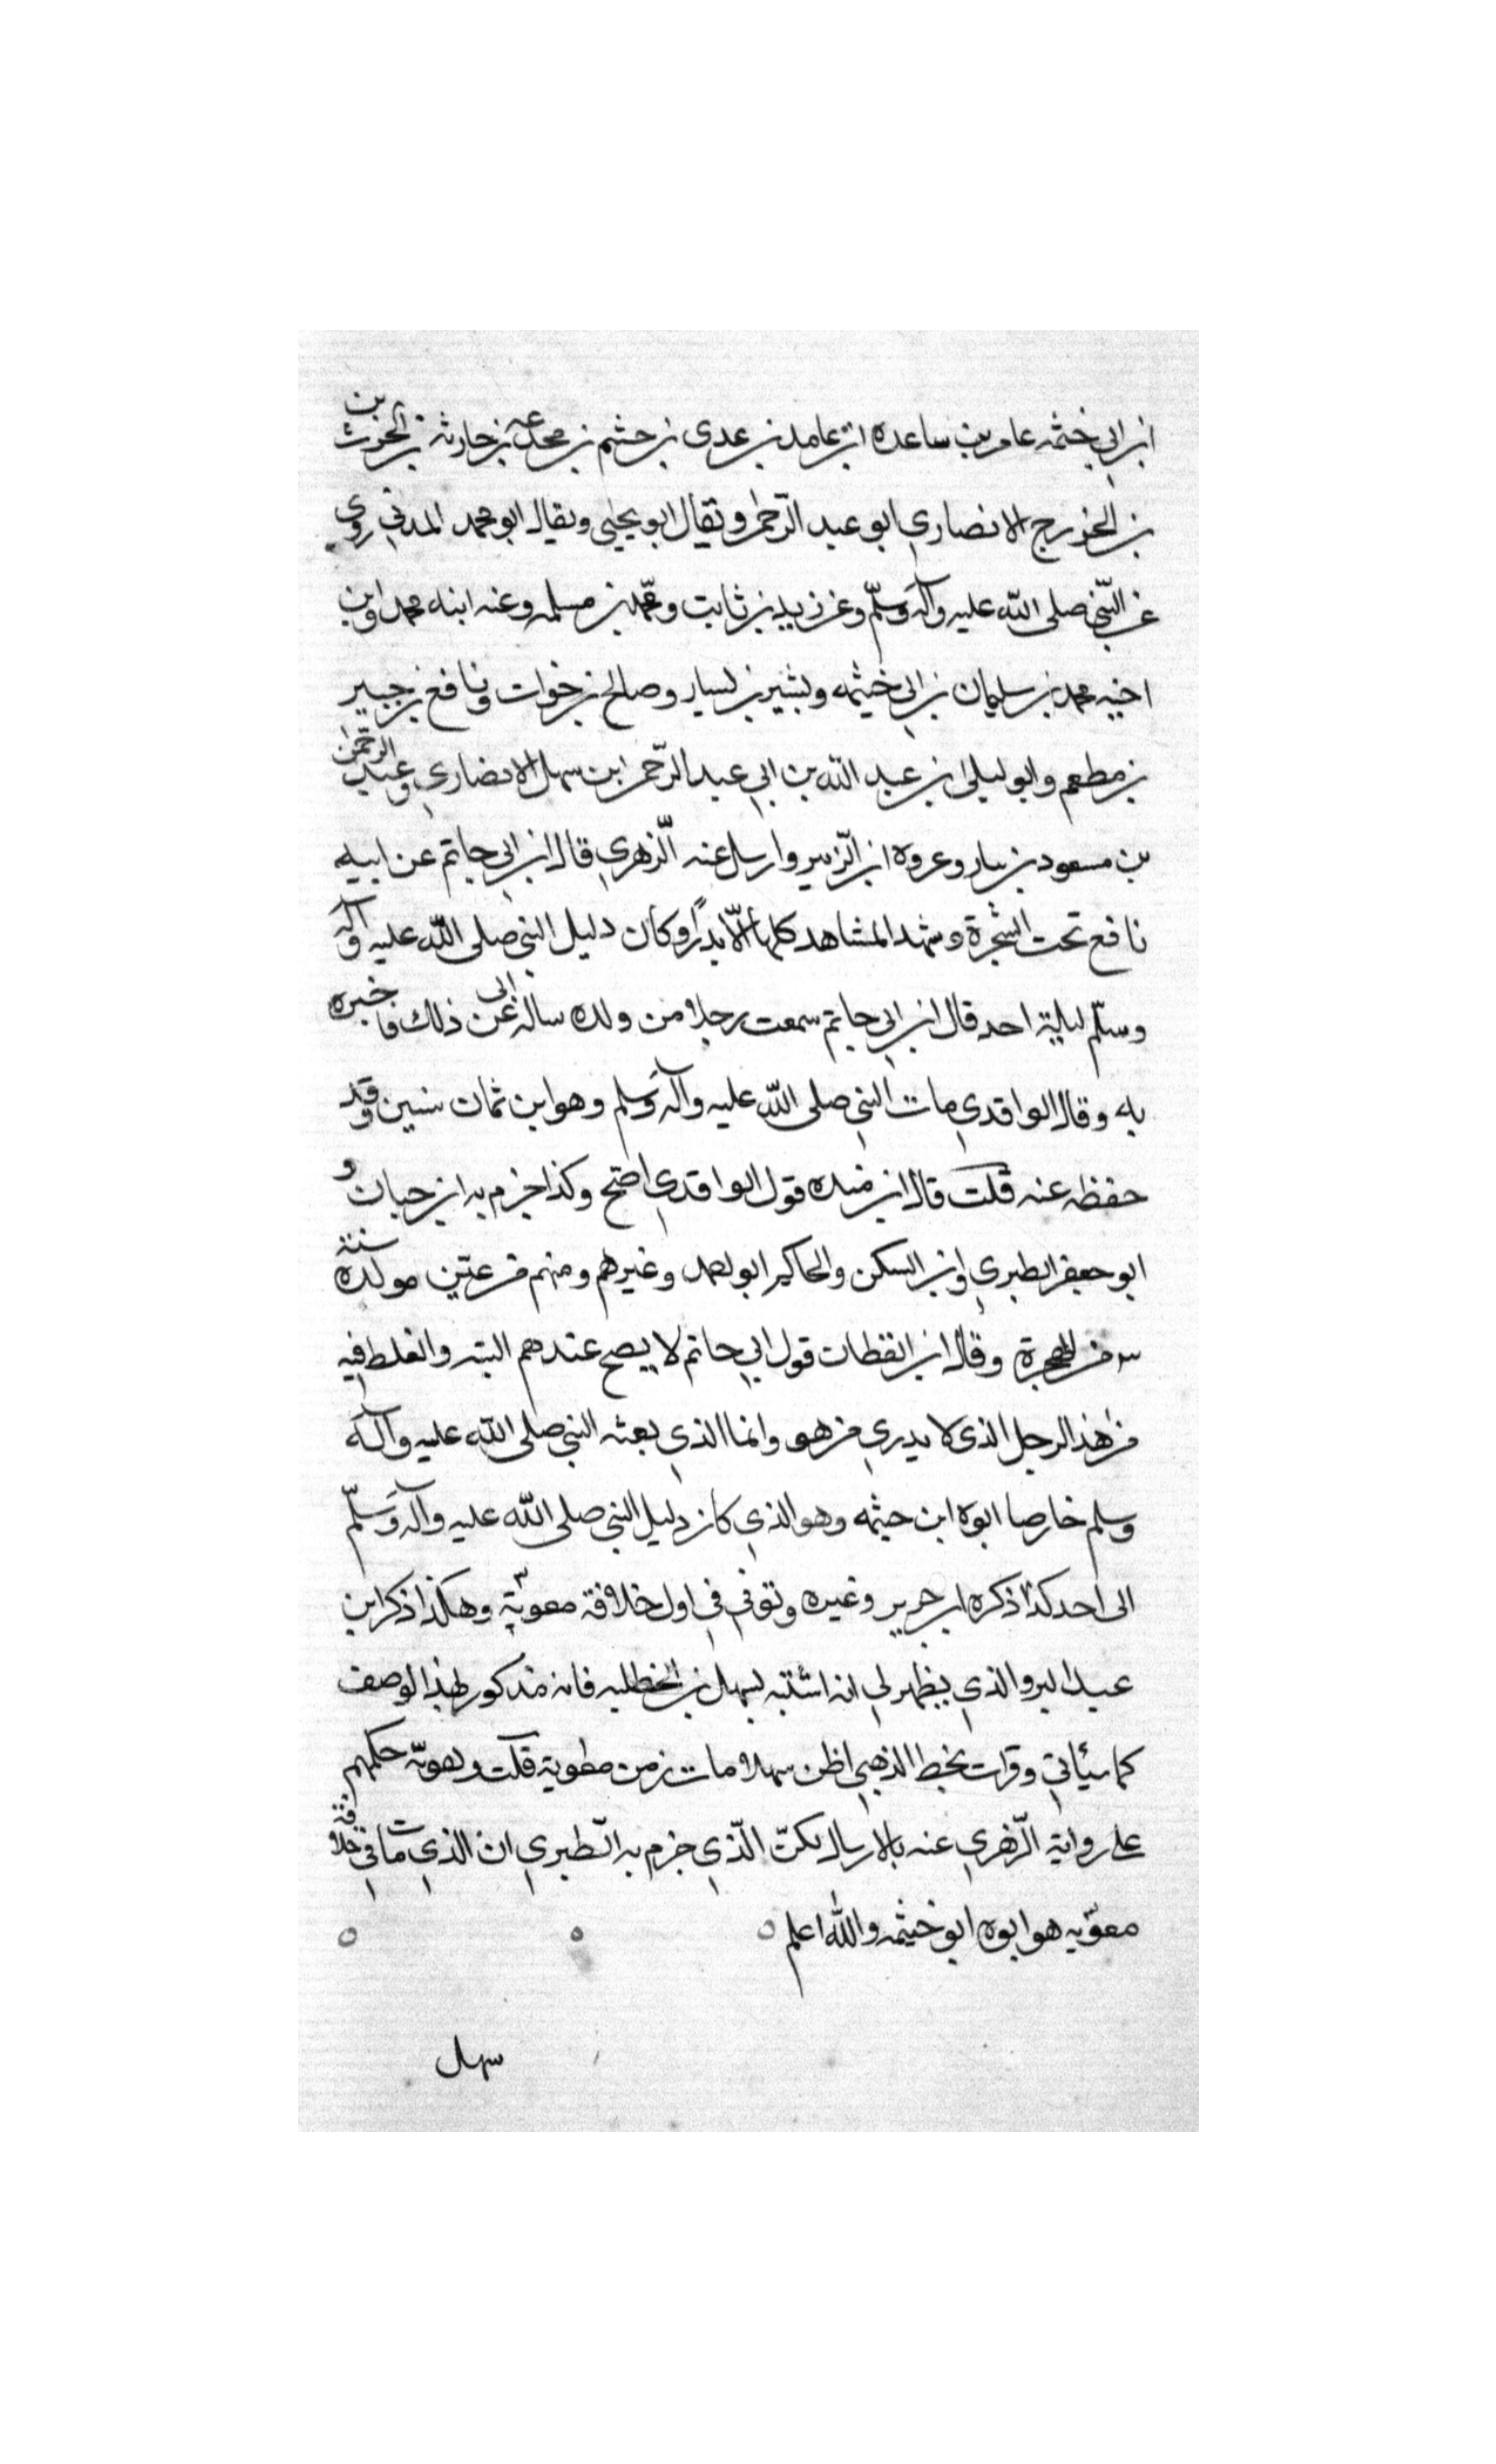 ابن ابي خثمه عامر بن ساعده ابن عامد بن عدى بن جشم بن مجدعه بن حارثه بن الحرث بن
بن الخزرج الانصاري ابو عبد الرحمن ويقال ابو يحيى ويقال ابو محمد المدني روى
عن النبي صلى الله عليه وآله وسلم وعن زيد بن ثابت ومحمد بن مسلمه وعنه ابنه محمد وابن
اخيه محمد بن سليمان بن ابي خيثمه وبشير بن يسار وصالح بن خوات ونافع بن جبير
بن مطعم وابو ليلى بن عبد الله بن ابي عبد الرحمن ابن سهل الانصاري وعبد الرحمن
بن مسعود بن يسار وعروه ابن الزبير وارسل عنه الزهري قال ابن ابي حاتم عن ابيه
نافع تحت الشجرة وشهد المشاهد كلها الّا بدرًا وكان دليل النبي صلى الله عليه وآله
وسلم ليلة احد قال ابن ابي حاتم سمعت رجلا من ولده ساله ابى عن ذلك فاخبره
به وقال الواقدي مات النبي صلى الله عليه وآله وسلم وهو ابن ثمان سنين وقد
حفظ عنه قلت قال ابن منده قول الواقدي اصح وكذا جزم به ابن حبان و
ابو جعفر الطبري وابن السكن والحاكم ابو احمد وغيرهم ومنهم من عين مولده سنة
٣ من الهجرة وقال ابن القطان قول ابي حاتم لا يصح عندهم البته والغلط فيه
من هذا الرجل الذى لا يدري من هو وانما الذي بعثه النبي صلى الله عليه وآله
وسلم خارصا ابوه ابن حيثمه وهو الذي كان دليل النبي صلى الله عليه وآله وسلم
الى احد كذا ذكره ابن جرير وغيره وتوفي في اول خلافة معوية وهكذا ذكر ابن
عبد البر والذي يظهر لي انه اشتبه بسهل بن الحنظليه فانه مذكور بهذا الوصف
كما سيأتي وقرات بخط الذهبي اظن سهلا مات زمن معوية قلت ويقويه حكمهم
على رواية الزهري عنه بالارسال لكن الّذي جزم به الطبري ان الذي مات في خلافة
معويه هو ابوه ابو خيثمه والله اعلم
سهل